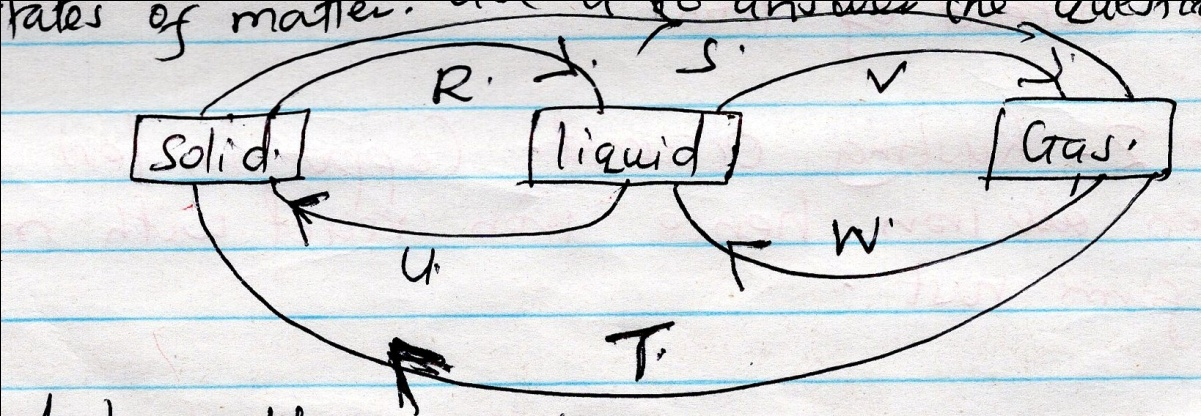 tates of matter. to answer the Questi
S.
R. V
Solid. liquid Gas.
U. W.
T.